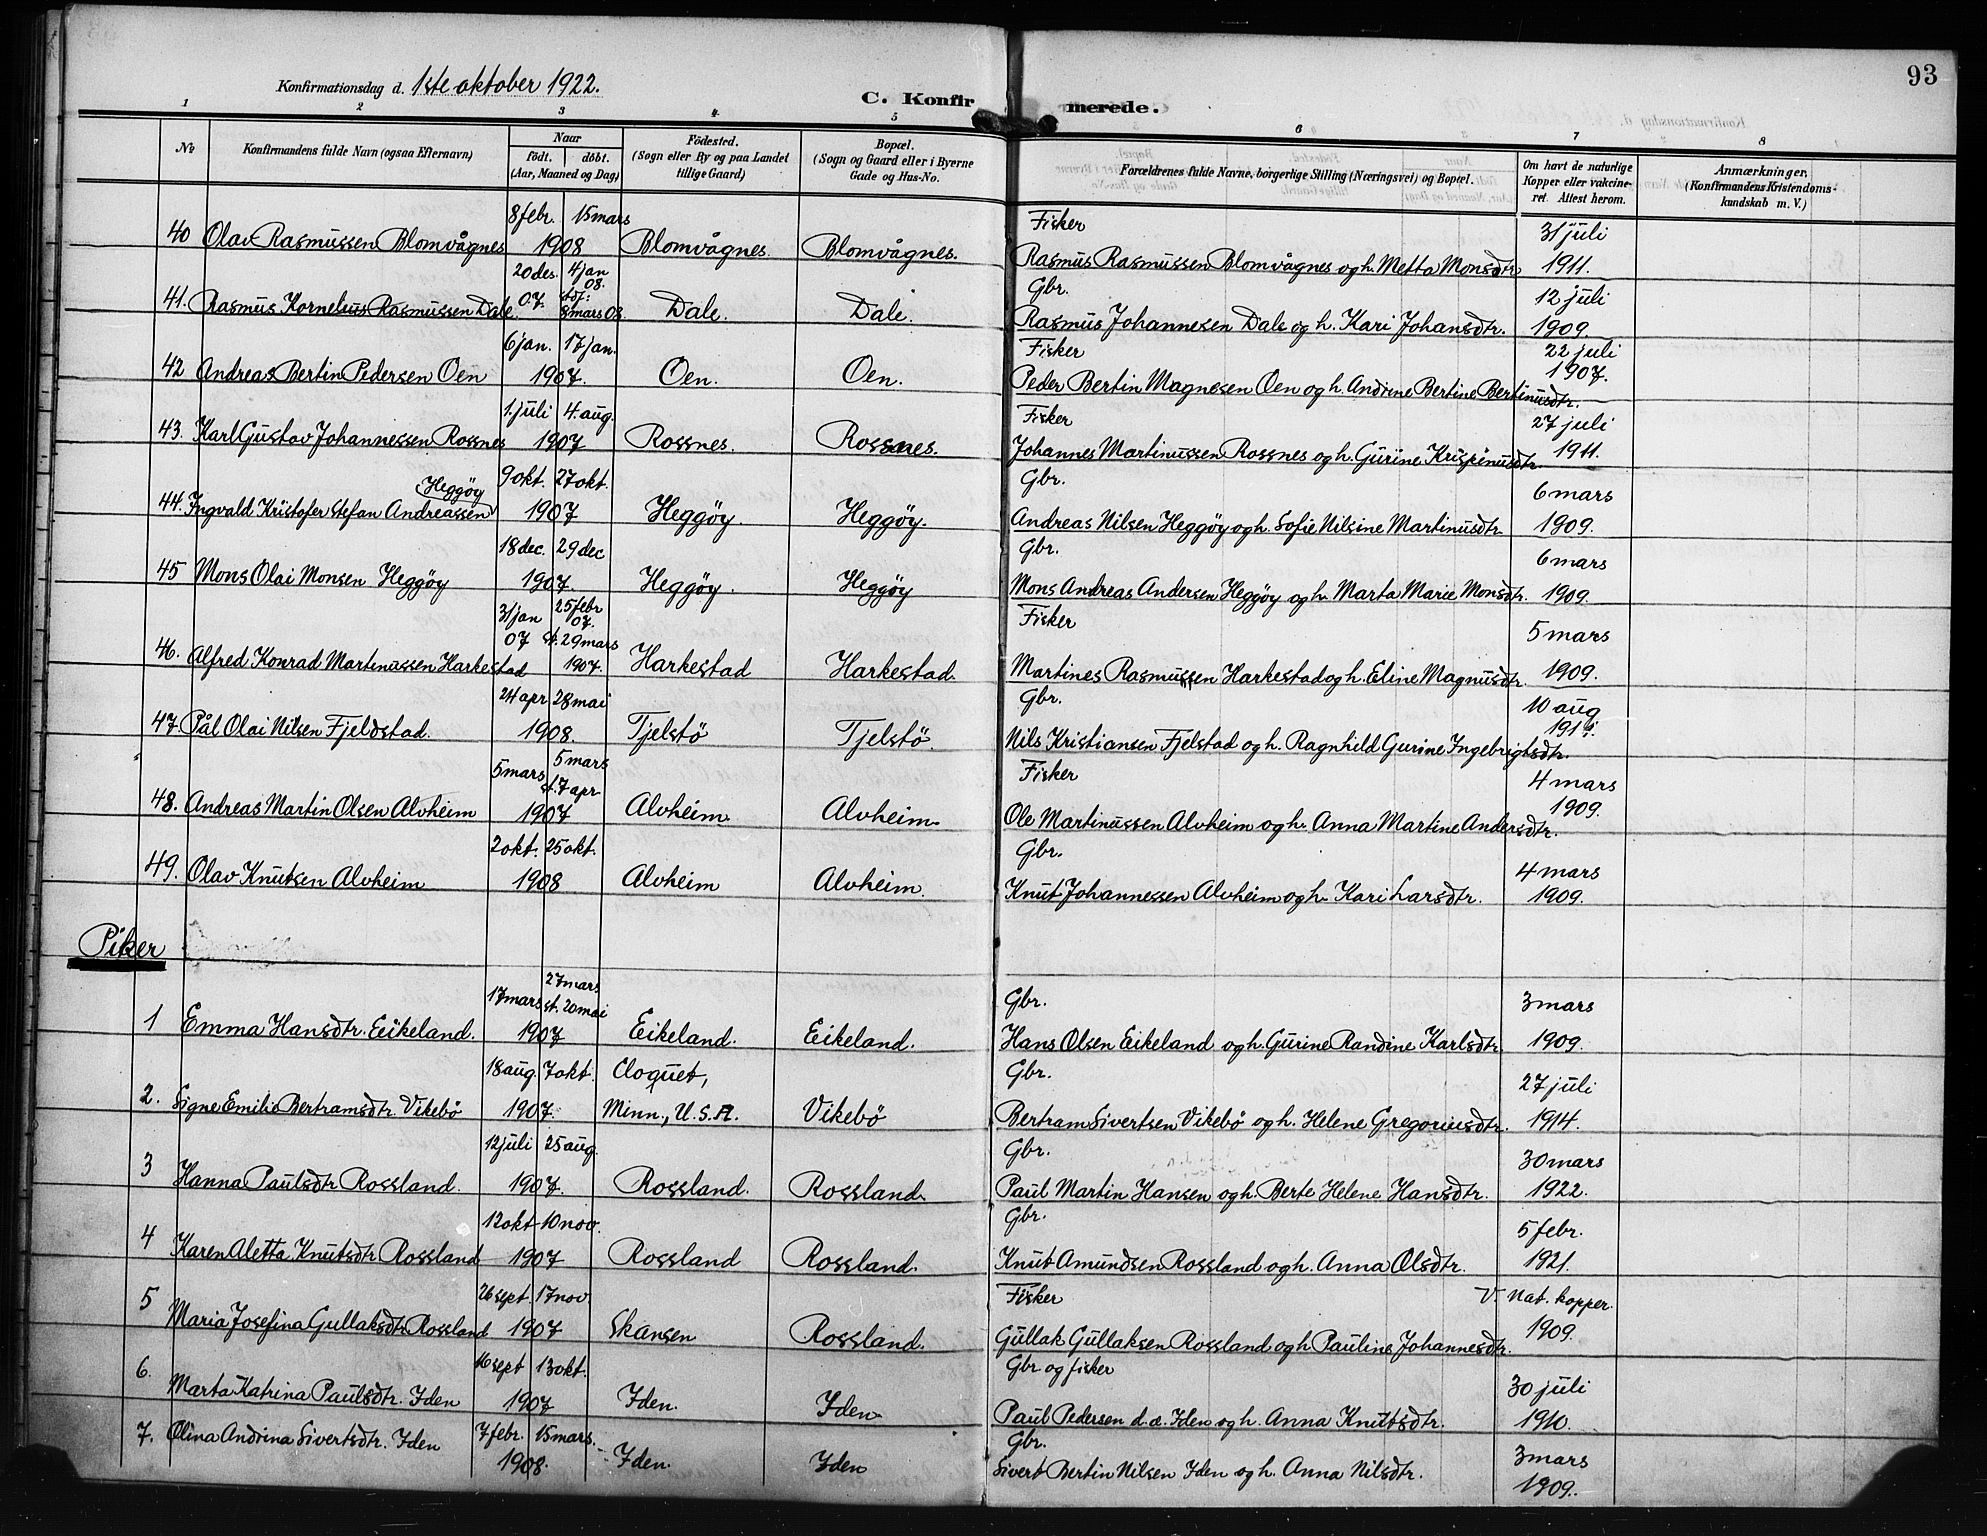 93
Konfirmationsdag d. 1ste oktober 1922.
C. Konfirmerede.
1 2 3 4 5 6 7 8
No
Konfirmandens fulde Navn (ogsaa Efternavn)
Naar
födt. döbt.
(Aar, Maaned og Dag)
Födested.
(Sogn eller By og paa Landet
tillige Gaard)
Bopæl.
(Sogn og Gaard eller i Byerne
Gade og Hus-No.
Forældrenes fulde Navne, borgerlige Stilling (Næringsvei) og Bopæl.
Om havt de naturlige
Kopper eller vakcine-
ret. Attest herom.
Anmærkninger,
(Konfirmandens Kristendoms-
kundskab m. V.)
8 febr. 15 mars Fisker 31 juli
40 Olav Rasmussen Blomvågnes 1908 Blomvågnes. Blomvågnes. Rasmus Rasmussen Blomvågnes og h. Metta Monsdtr 1911.
20 des. 4 jan 08. Gbr. 12 juli
41. Rasmus Kornelius Rasmussen Dale 07. 8 mars 08 Dale. Dale. Rasmus Johannesen Dale og h. Kari Johansdtr. 1909.
6 jan. 17 jan. Fisker 22 juli
42 Andreas Bertin Pedersen Oen 1907. Oen. Oen. Peder Bertin Magnesen Oen og h. Andrine Bertine Bertinusdtr. 1907.
1. juli 4. aug. Fisker 27 juli
43. Karl Gustav Johannessen Rossnes 1907 Rossnes. Rossnes. Johannes Martinussen Rossnes og h. Gurine Krispinusdtr. 1911.
Heggöy 9 okt. 27 okt. Gbr. 6 mars
44. Ingvald Kristofer Stefan Andreassen 1907 Heggöy. Heggöy. Andreas Nilsen Heggöy og h. Sofie Nilsine Martinusdtr 1909.
18 dec. 29 dec Gbr. 6 mars
45 Mons Olai Monsen Heggöy 1907. Heggöy. Heggöy Mons Andreas Andersen Heggöy og h. Marta Marie Monsdtr. 1909.
31 jan 25 febr 07. Fisker 5 mars
07 st. 29 mars
46. Alfred Konrad Martinussen Harkestad 1907. Harkestad Harkestad. Martines Rasmussen Harkestad og h. Eline Magnusdtr. 1909.
24 apr 28 mai Gbr. 10 aug
47. Pål Olai Nilsen Fjeldstad. 1908. Tjelstö Tjelstö. Nils Kristiansen Fjelstad og h. Ragnhild Gurine Ingebrigtsdtr.
5 mars 5 mars st. 7 apr Fisker 4 mars
48. Andreas Martin Olsen Alvheim 1907 Alvheim. Alvheim. Ole Martinussen Alvheim og h. Anna Martine Andersdtr. 1909.
2 okt. 25 okt. Gbr. 4 mars
49. Olav Knutsen Alvheim 1908 Alvheim Alvheim. Knut Johannessen Alvheim og h. Kari Larsdtr. 1909.
Piker
17 mars 27 mars st. 20 mai Gbr. 3 mars
1 Emma Hansdtr. Eikeland. 1907 Eikeland. Eikeland. Hans Olsen Eikeland og h. Gurine Randine Karlsdtr. 1909.
18 aug. 7 okt. Cloquet, Gbr. 27 juli
2. Signe Emilie Bertramsdtr. Vikebö 1907. Minn., U.S.A. Vikebö Bertram Sivertsen Vikebö og h. Helene Gregoriusdtr. 1914.
12 juli 25 aug. Gbr. 30 mars
3 Hanna Paulsdtr Rossland. 1907. Rossland. Rossland. Paul Martin Hansen og h. Berte Helene Hansdtr. 1922.
12 okt 10 nov. Gbr. 5 febr.
4 Karen Aletta Knutsdtr Rossland 1907 Rossland Rossland. Knut Amundsen Rossland og h. Anna Olsdtr. 1921.
26 sept. 17 nov. Fisker V. Nat. kopper.
5 Maria Josefina Gullaksdtr. Rossland 1907 Skansen Rossland. Gullak Gullaksen Rossland og h. Pauline Johannesdtr. 1909.
16 sept 13 okt. Gbr og fisker 30 juli
6. Marta Katrina Paulsdtr. Iden 1907 Iden. Iden. Paul Pedersen d. æ. Iden og h. Anna Knutsdtr. 1910.
7 febr. 15 mars. Gbr. 3 mars
7. Olina Andrina Sivertsdtr. Iden 1908. Iden. Iden Sivert Bertin Nilsen Iden og h. Anna Nilsdtr. 1909.